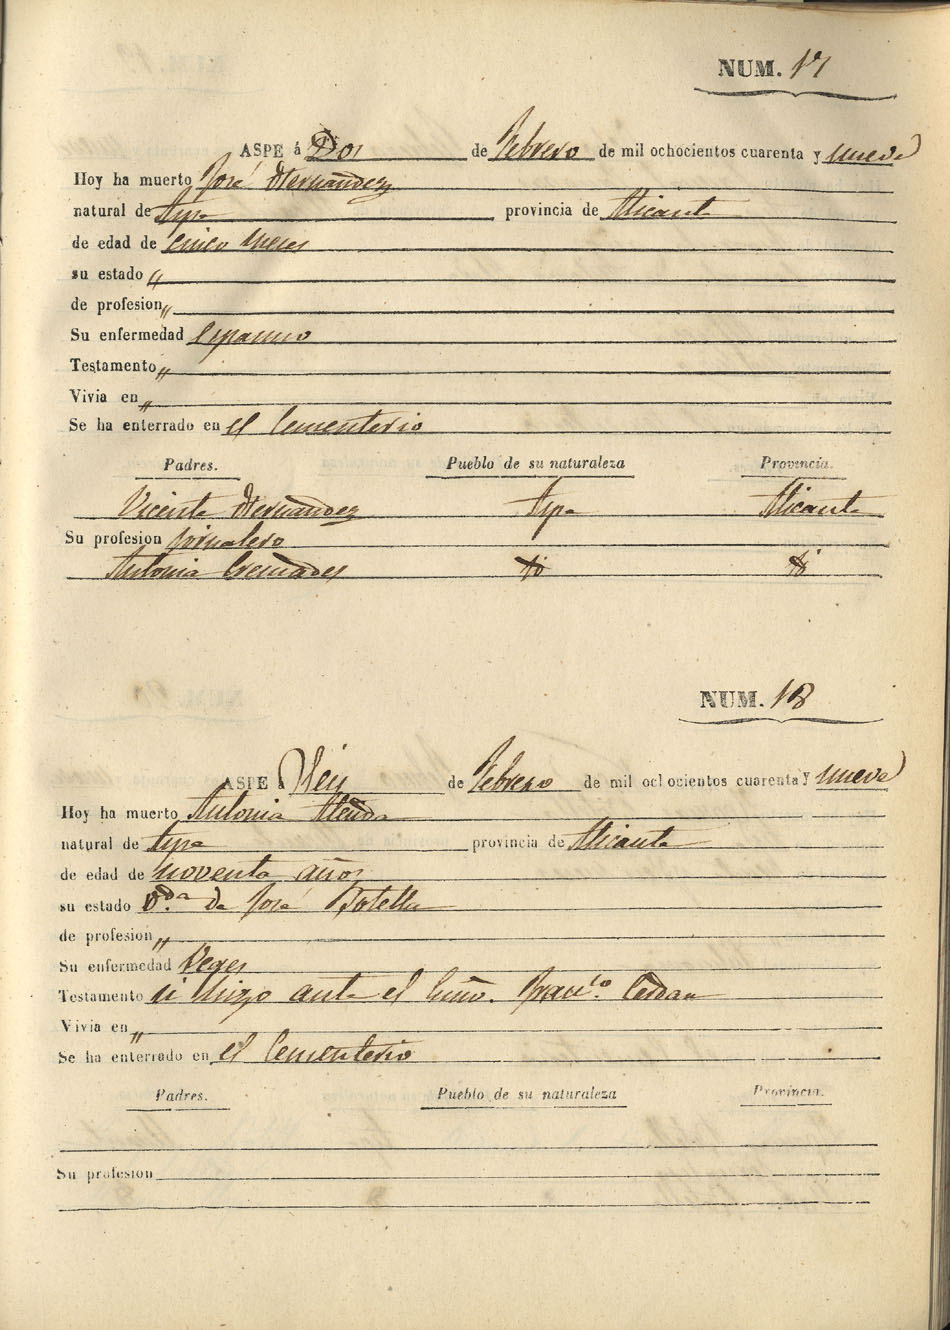 NUM. 17
ASPE á Dos de Febrero de mil ochocientos cuarenta y nueve
Hoy ha muerto José Hernandez
natural de Aspe provincia de Alicante
de edad de cinco meses
su estado "
de profesion "
Su enfermedad Espasmo
Testamento "
Vivia en "
Se ha enterrado en el Cementerio
Padres. Pueblo de su naturaleza Provincia.
Vicente Hernandez Aspe Alicante
Su profesion jornalero
Antonia Cremades
NUM. 18
ASPE á Séis de Febrero de mil ochocientos cuarenta y nueve
Hoy ha muerto Antonia Alenda
natural de Aspe provincia de Alicante
de edad de noventa años
su estado V.da de José Botella
de profesion "
Su enfermedad Veges
Testamento si hizo ante el Franco. Cerdan
Vivia en "
Se ha enterrado en el Cementerio
Padres. Pueblo de su naturaleza Provincia.
Su profesion